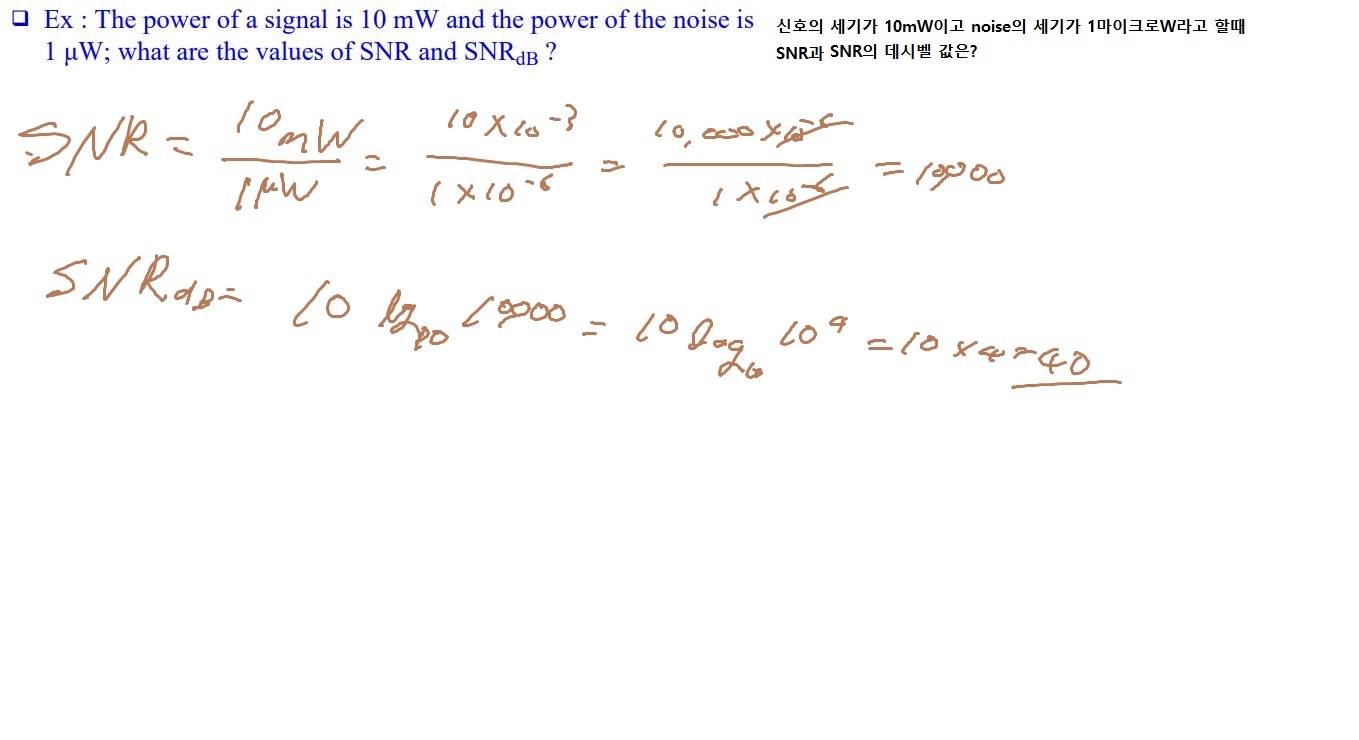 ❑ Ex : The power of a signal is 10 mW and the power of the noise is
1 μW; what are the values of SNR and SNR_dB ?
신호의 세기가 10mW이고 noise의 세기가 1마이크로W라고 할때
SNR과 SNR의 데시벨 값은?
SNR = 10mW / 1μW = 10 × 10^-3 / 1 × 10^-6 = 10,000 × 10^-6 / 1 × 10^-6 = 10000
SNR_dB = 10 log_10 10000 = 10 log_10 10^4 = 10 × 4 = 40